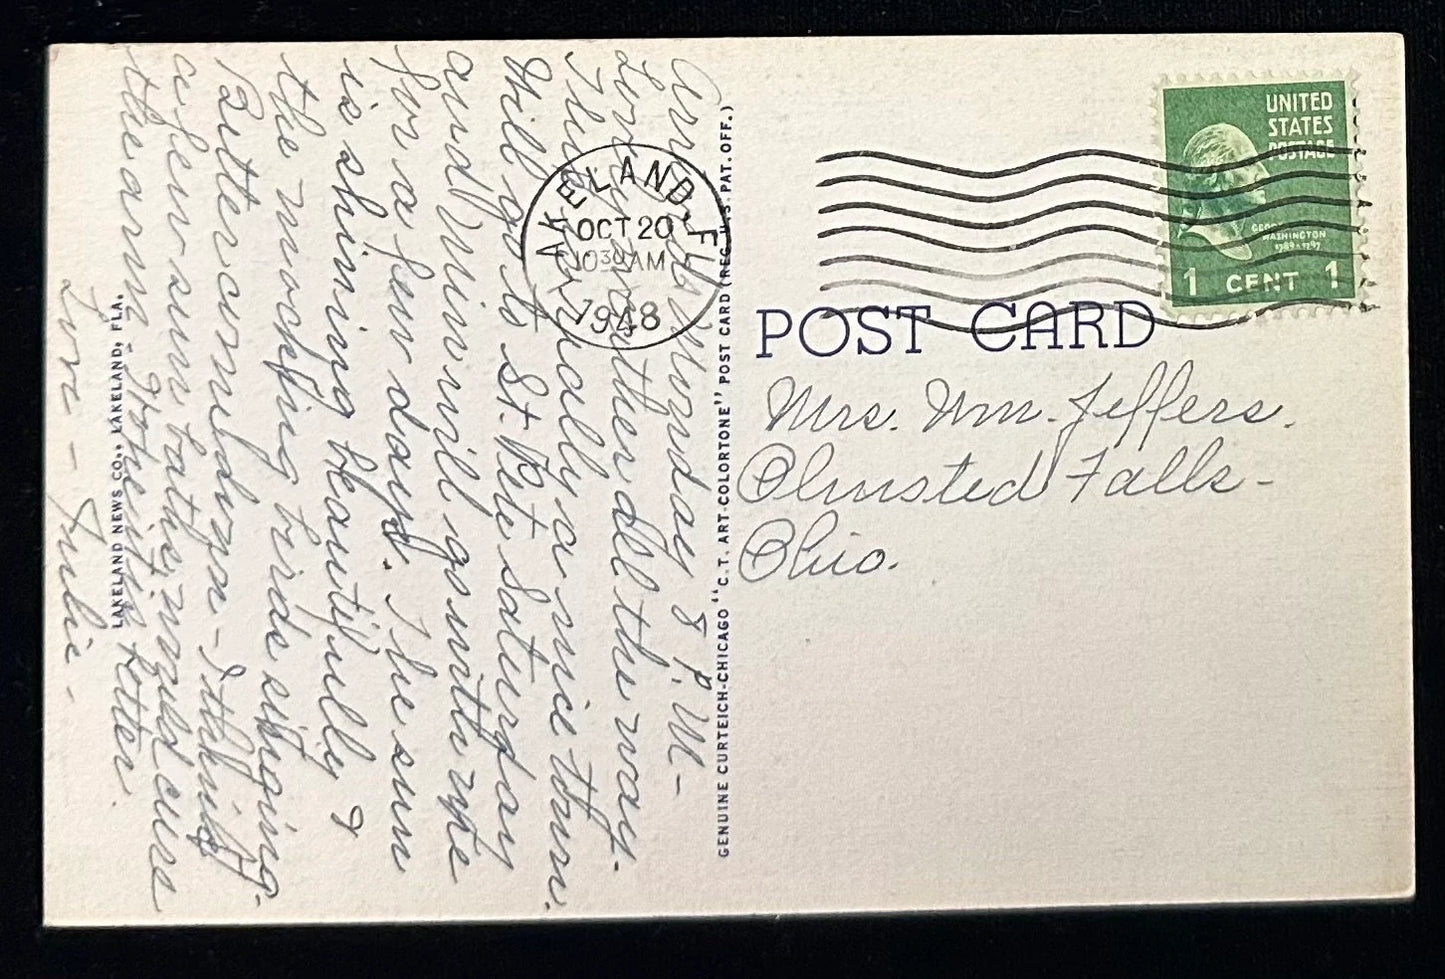 UNITED
STATES
POSTAGE
GEORGE
WASHINGTON
1789-1797
1 CENT 1
LAKELAND, FLA.
OCT 20
10 30 AM
1948
POST CARD
Mrs. Wm. Jeffers.
Olmsted Falls -
Ohio.
Arrived Monday 8 P. M -
Lovely weather all the way.
This is really a nice town.
Will go to St. Pete Saturday
and Min will go with me
for a few days. The sun
is shining beautifully &
the mocking birds singing.
Butter comes down - I think
a few sun baths, would cure
the arm, it's better.
Love - Julie -
LAKELAND NEWS CO., LAKELAND, FLA.
GENUINE CURTEICH-CHICAGO "C. T. ART-COLORTONE" POST CARD (REG. U. S. PAT. OFF.)